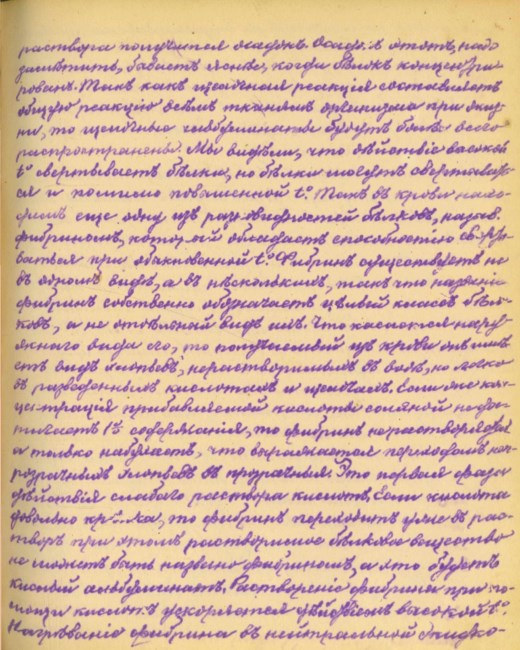 раствора получится осадокъ. Осадокъ этотъ, надо
замѣтить, бываетъ яснѣе, когда бѣлокъ концентри
рованъ. Такъ какъ щелочная реакція составляетъ
общую реакцію всѣхъ тканямъ организма при жиз
ни, то щелочные альбуминаты будутъ болѣе всего
распространены. Мы видѣли, что дѣйствіе высокой
t° свертываетъ бѣлки, но бѣлки могутъ свертыват
ся и помимо повышенной t°. Такъ въ крови нахо
димъ еще одну изъ разновидностей бѣлковъ, назыв.
фибриномъ, который обладаетъ способностію сверты
ваться при обыкновенной t°. Фибринъ существуетъ не
въ одномъ видѣ, а въ нѣсколькихъ, такъ что названіе
фибринъ собственно обозначаетъ цѣлый классъ бѣл
ковъ, а не отдѣльный видъ ихъ. Что касается нару
жнаго вида его, то получаемый изъ крови онъ имѣ
етъ видъ хлопьевъ, нерастворимыхъ въ водѣ, но легко
въ разведенныхъ кислотахъ и щелочахъ. Если же кон
центрація прибавляемой кислоты соляной не дос
тигаетъ 1% содержанія, то фибринъ не растворяется
а только набухаетъ, что выражается переходомъ неп
розрачныхъ хлопьевъ въ прозрачныя. Это первая фаза
дѣйствія слабаго раствора кислотъ. Если кислота
довольно, то фибринъ переходитъ уже въ рас
творъ при этомъ растворимое бѣлковое вещество
не можетъ быть названо фибриномъ, а это будетъ
кислый альбуминатъ. Раствореніе фибрина при по
мощи кислотъ ускоряется дѣйствіемъ высокой t°.
Нагрѣваніе фибрина въ нейтральной жидко-